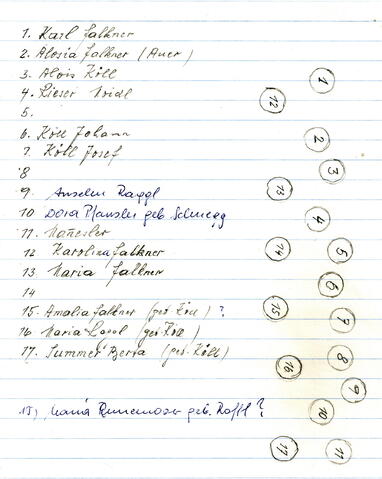 1. Karl Falkner
2. Alosia Falkner (Auer)
3. Alois Köll
4. Rieser
5.
6. Köll Johann
7. Köll Josef
8
9. Anselm Raggl
10 Dora geb. Schnegg
11.
12 Karolina Falkner
13 Maria Falkner
14
15. Amalia Falkner (geb. Köll) ?
16 Maria (geb. Köll)
17. Summer Berta (geb. Köll)
18) Maria geb. Raffl ?
1
12
2
3
13
4
14
5
6
15
7
8
16
9
10
17
11